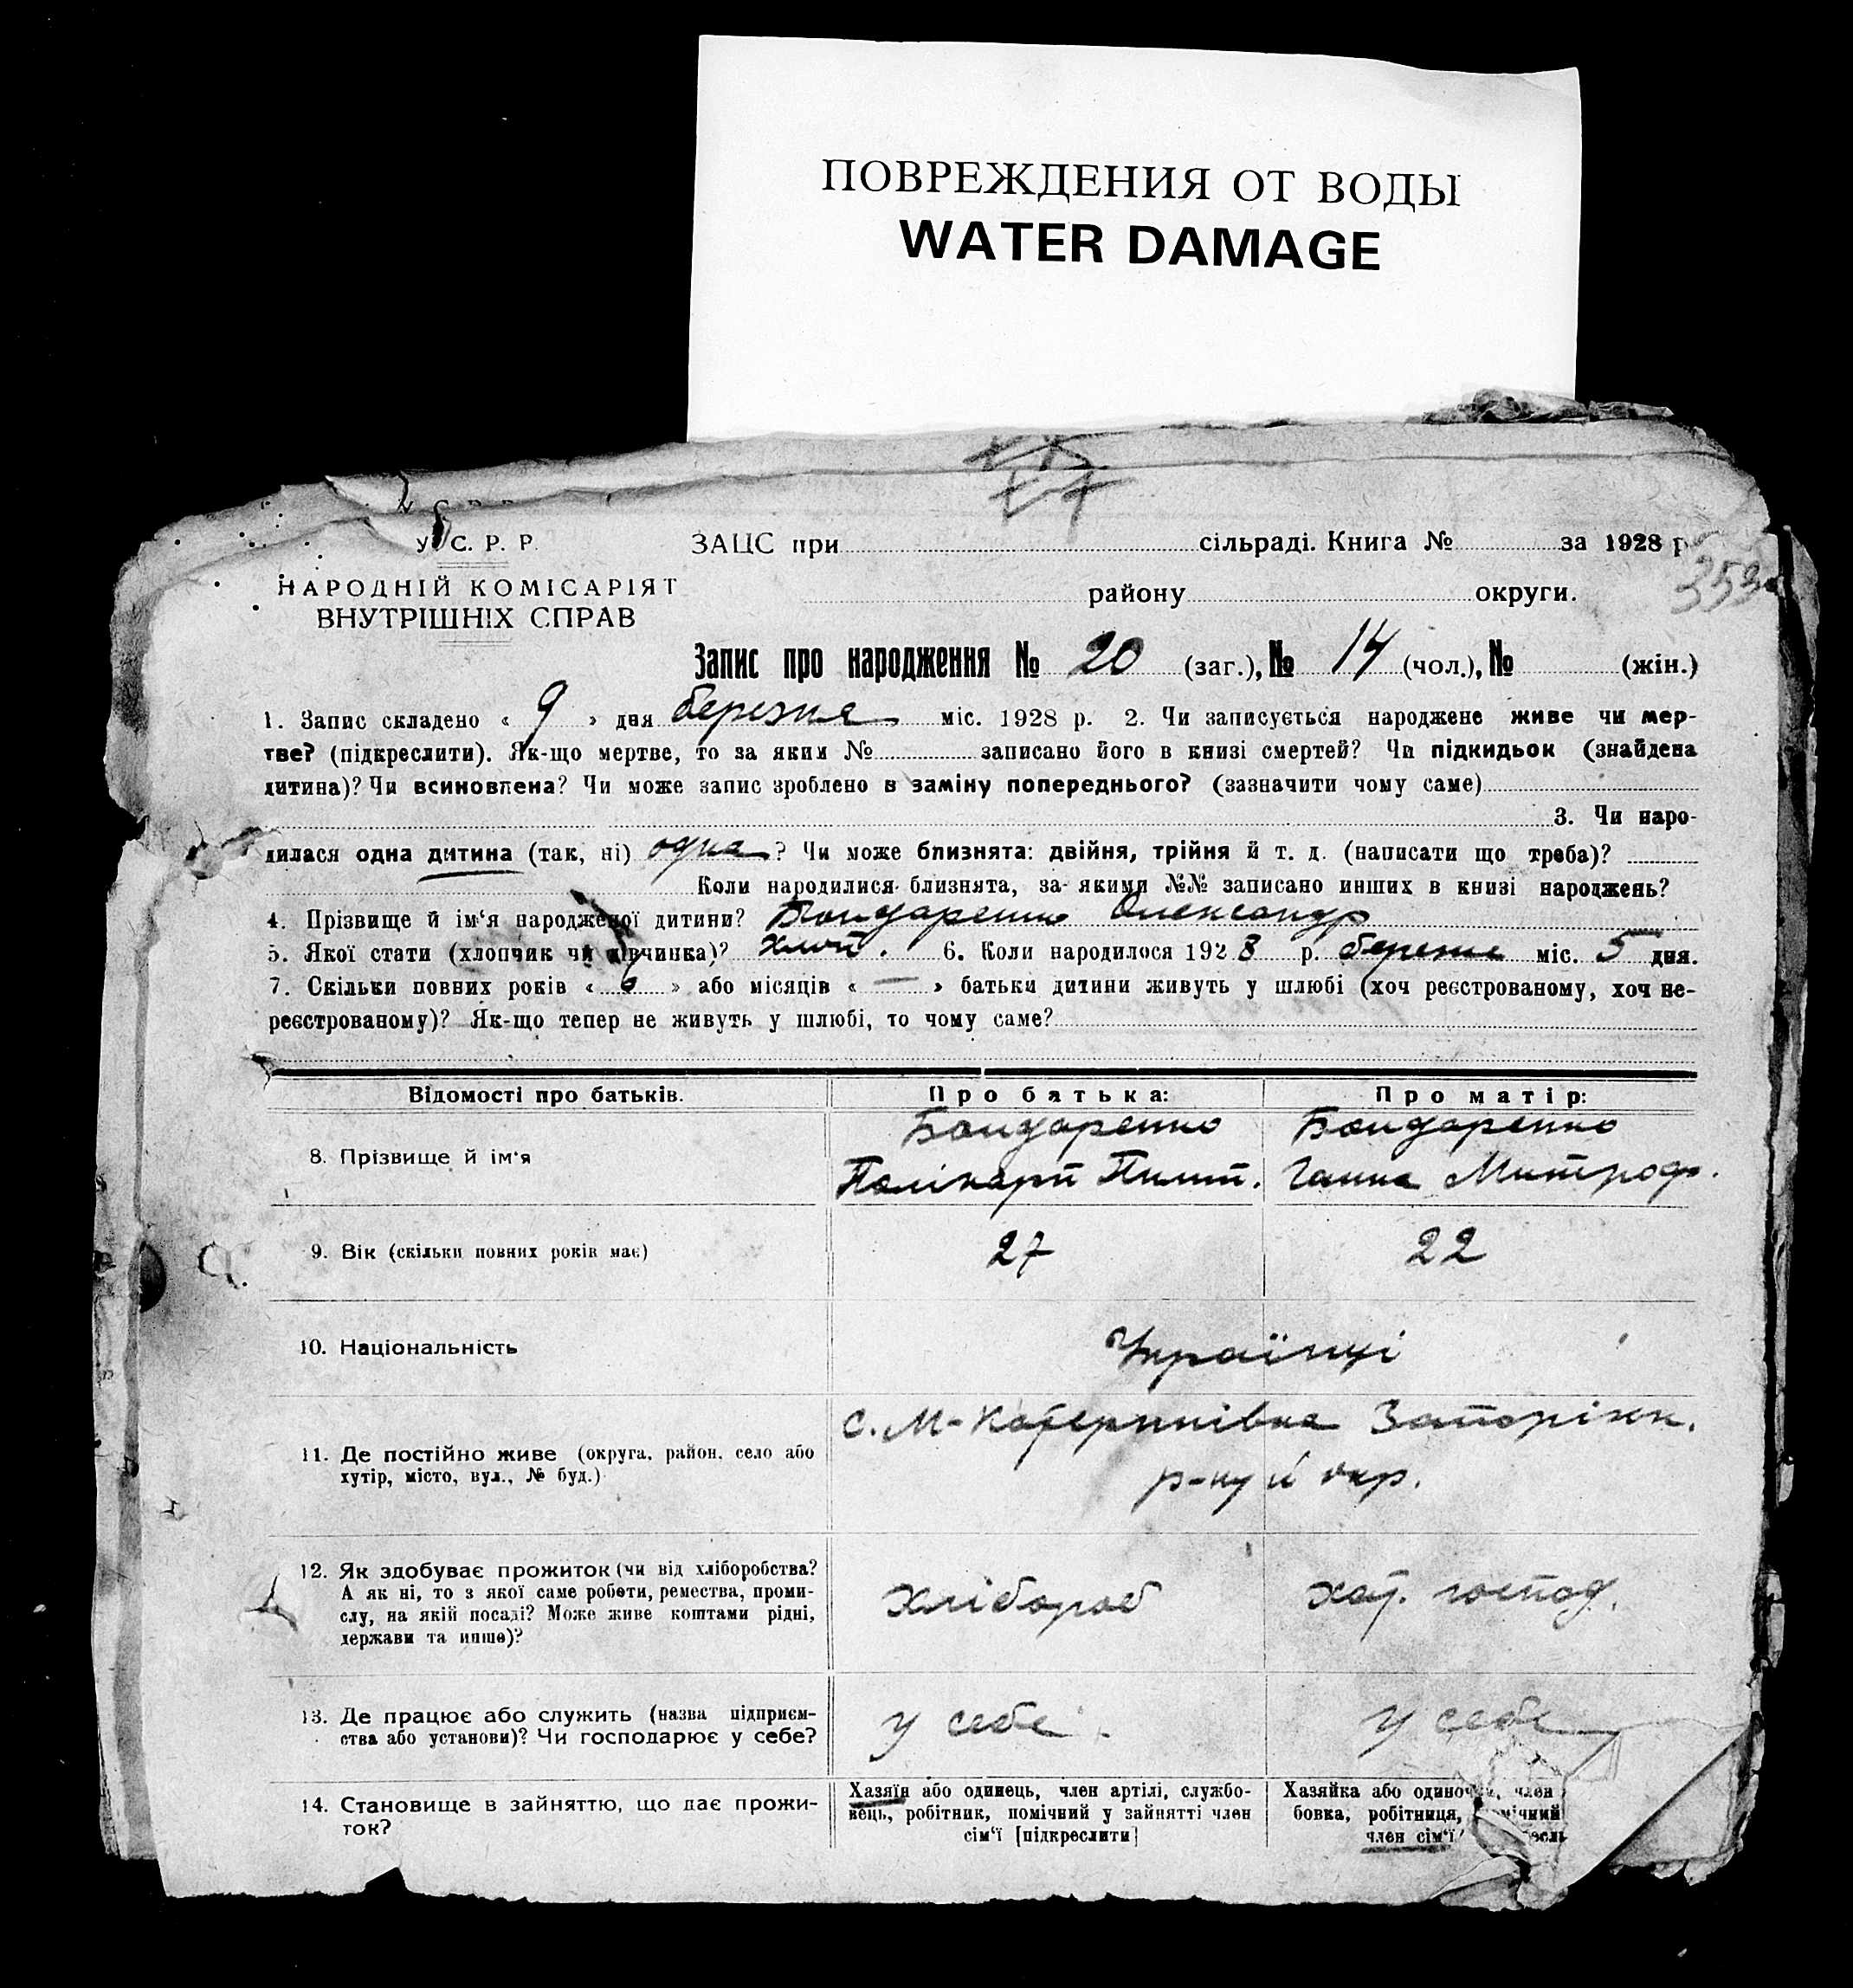 ПОВРЕЖДЕНИЯ ОТ ВОДЫ
WATER DAMAGE
У. С. Р. Р.
НАРОДНІЙ КОМІСАРІЯТ
ВНУТРІШНІХ СПРАВ
ЗАЦС при сільраді. Книга № за 1928 р
353
району округи.
Запис про народження № 20 (заг.), № 14 (чол.), № (жін.)
1. Запис складено « 9 » дня березня міс. 1928 р. 2. Чи записується народжене живе чи мер-
тве? (підкреслити). Як-що мертве, то за яким № записано його в книзі смертей? Чи підкидьок (знайдена
дитина)? Чи всиновлена? Чи може запис зроблено в заміну попереднього? (зазначити чому саме)
3. Чи наро-
дилася одна дитина (так, ні) одна? Чи може близнята: двійня, трійня й т. д. (написати що треба)?
Коли народилися близнята, за якими №№ записано инших в книзі народжень?
4. Прізвище й ім‘я народженої дитини? Бондаренко Олександр
5. Якої стати (хлопчик чи дівчинка)? хлоп. 6. Коли народилося 1928 р. березня міс. 5 дня.
7. Скільки повних років « 6 » або місяців « — » батьки дитини живуть у шлюбі (хоч реєстрованому, хоч не-
реєстрованому)? Як-що тепер не живуть у шлюбі, то чому саме?
Відомості про батьків. Про батька: Про матір:
8. Прізвище й ім‘я
Бондаренко
Полікарп Пилип.
Бондаренко
Ганна Митроф.
9. Вік (скільки повних років має) 27 22
10. Національність Українці
11. Де постійно живе (округа, район, село або
хутір, місто, вул., № буд.)
с. М-Катеринівка Запоріжж.
р-ну й окр.
12. Як здобуває прожиток (чи від хліборобства?
А як ні, то з якої саме роботи, ремества, проми-
слу, на якій посаді? Може живе коштами рідні,
держави та инше)?
хлібороб
хат. господ.
13. Де працює або служить (назва підприєм-
ства або установи)? Чи господарює у себе?
у себе
у себе
14. Становище в зайняттю, що дає прожи-
ток?
Хазяїн або одинець, член артілі, службо-
вець, робітник, помічний у зайнятті член
сім‘ї [підкреслити]
Хазяйка або одиночка, член
бовка, робітниця,
член сім‘ї